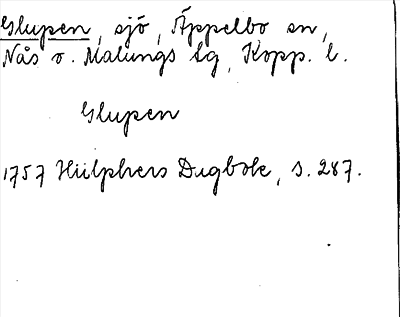 Glupen, sjö, Äppelbo sn,
Nås o. Malungs tg, Kopp. l.
Glupen
1757 Hülphers Dagbok, s. 287.